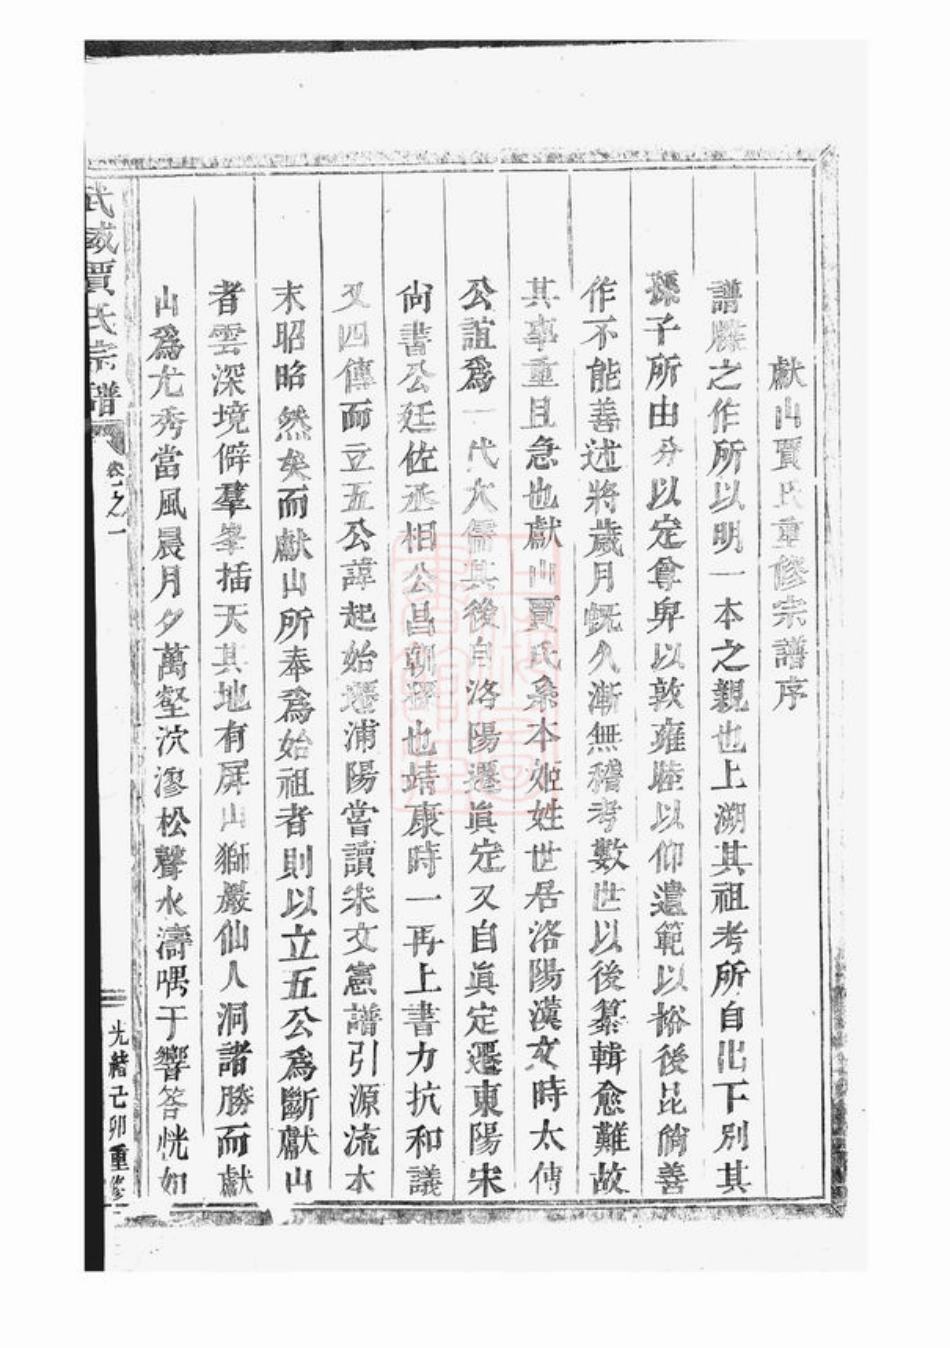 獻山賈氏重修宗譜序
譜牒之作所以明一本之親也上溯其祖考所自出下別其
孫子所由分以定尊卑以敦雍睦以仰遺範以裕後昆倘善
作不能善述將歲月旣久漸無稽考數世以後纂輯愈難故
其事重且急也獻山賈氏系本姬姓世居洛陽漢文時太傅
公誼爲一代大儒其後自洛陽遷眞定又自眞定遷東陽宋
尙書公廷佐丞相公昌朝孫也靖康時一再上書力抗和議
又四傳而立五公諱起始遷浦陽嘗讀宋文憲譜引源流本
末昭昭然矣而獻山所奉爲始祖者則以立五公爲斷獻山
者雲深境僻羣峯插天其地有屏山獅巖仙人洞諸勝而獻
山爲尤秀當風晨月夕萬壑泬漻松聲水濤喁于響答恍如
武威賈氏宗譜
卷一之一
光緖己卯重修